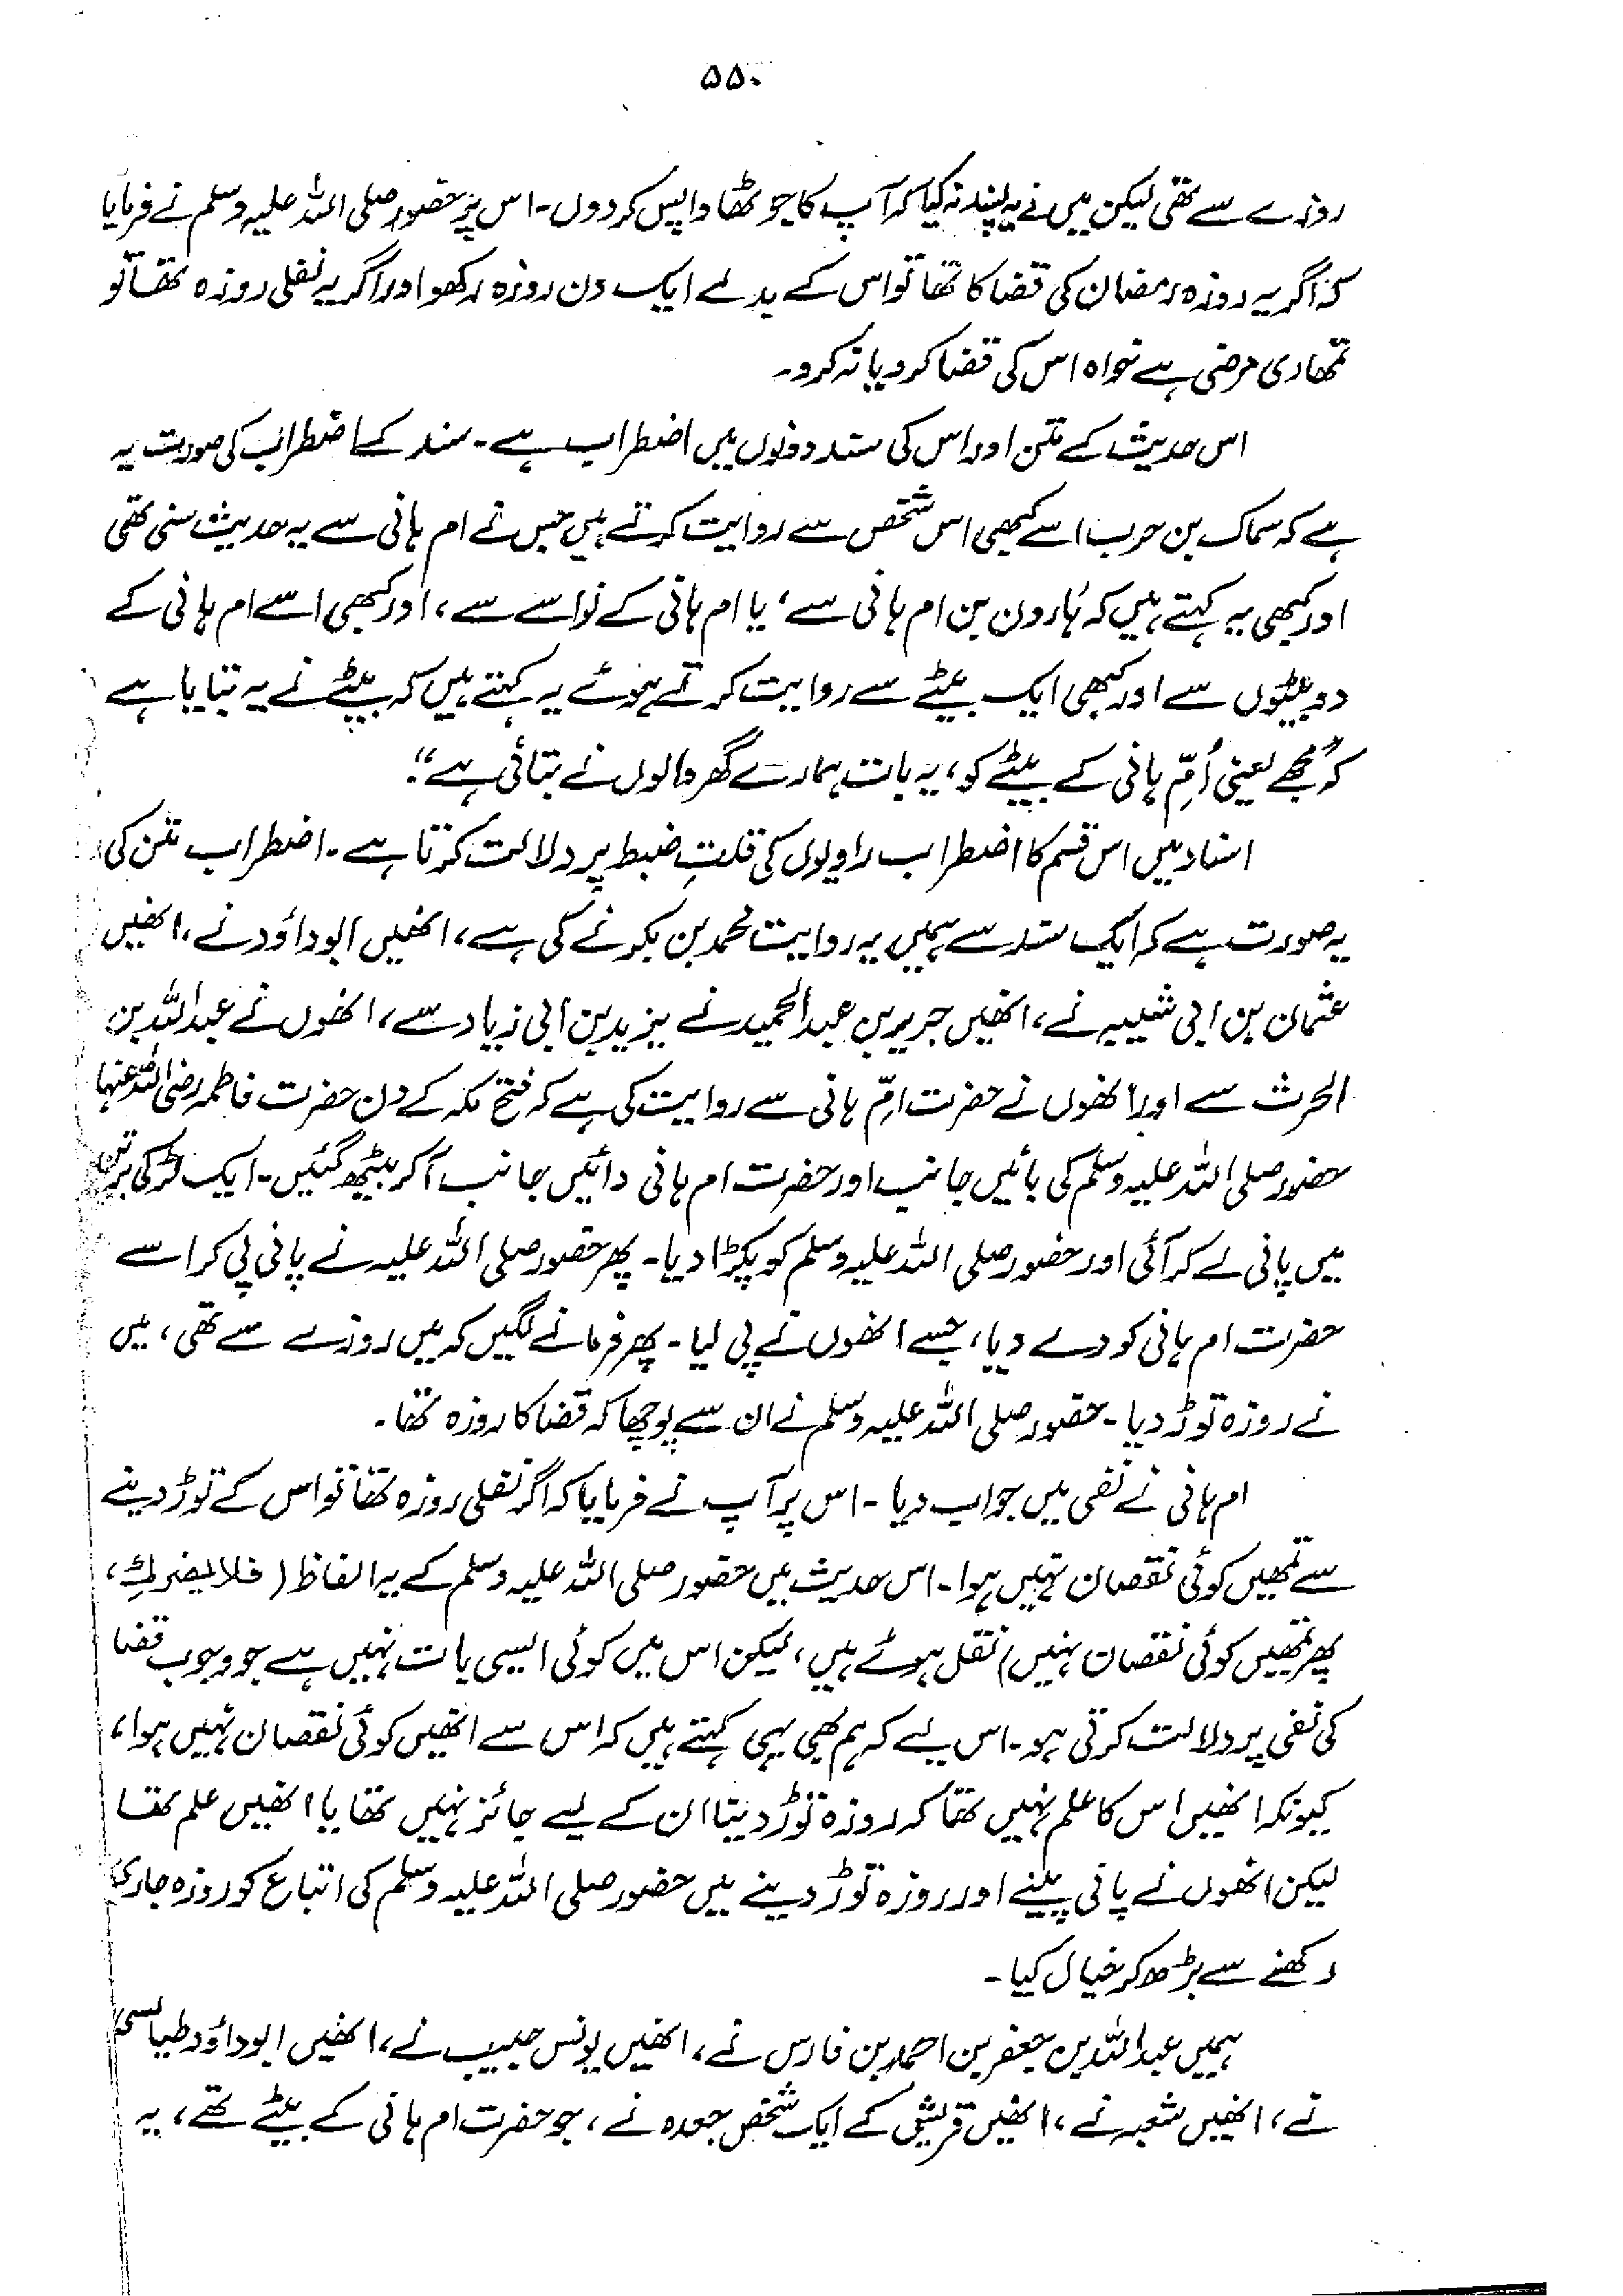 ۵۵۰
روزے سے تھی لیکن میں نے یہ پسند نہ کیا کہ آپ کا جوٹھا واپس کر دوں۔ اس پر حضور صلی اللہ علیہ وسلم نے فرمایا
کہ اگر یہ روزہ رمضان کی قضا کا تھا تو اس کے بدلے ایک دن روزہ رکھو اور اگر یہ نفلی روزہ تھا تو
تمھاری مرضی ہے خواہ اس کی قضا کرو یا نہ کرو۔
اس حدیث کے متن اور اس کی سند دونوں میں اضطراب ہے۔ سند کے اضطراب کی صورت یہ
ہے کہ سماک بن حرب اسے کبھی اس شخص سے روایت کرتے ہیں جس نے ام ہانی سے یہ حدیث سنی تھی
اور کبھی یہ کہتے ہیں کہ ہارون بن ام ہانی سے، یا ام ہانی کے نواسے سے، اور کبھی اسے ام ہانی کے
دو بیٹوں سے اور کبھی ایک بیٹے سے روایت کرتے ہوئے یہ کہتے ہیں کہ بیٹے نے یہ بتایا ہے
کہ "مجھے یعنی اُمِّ ہانی کے بیٹے کو، یہ بات ہمارے گھر والوں نے بتائی ہے"۔
اسناد میں اس قسم کا اضطراب راویوں کی قلتِ ضبط پر دلالت کرتا ہے۔ اضطراب متن کی
یہ صورت ہے کہ ایک سند سے ہمیں یہ روایت محمد بن بکر نے کی ہے، انھیں ابوداؤد نے، انھیں
عثمان بن ابی شیبہ نے، انھیں جریر بن عبدالحمید نے یزید بن ابی زیاد سے، انھوں نے عبداللہ بن
الحرث سے اور انھوں نے حضرت امِّ ہانی سے روایت کی ہے کہ فتح مکہ کے دن حضرت فاطمہ رضی اللہ عنہا
حضور صلی اللہ علیہ وسلم کی بائیں جانب اور حضرت ام ہانی دائیں جانب آکر بیٹھ گئیں۔ ایک لڑکی برتن
میں پانی لے کر آئی اور حضور صلی اللہ علیہ وسلم کو پکڑا دیا۔ پھر حضور صلی اللہ علیہ نے پانی پی کر اسے
حضرت ام ہانی کو دے دیا، جسے انھوں نے پی لیا۔ پھر فرمانے لگیں کہ میں روزے سے تھی، میں
نے روزہ توڑ دیا۔ حضور صلی اللہ علیہ وسلم نے ان سے پوچھا کہ قضا کا روزہ تھا۔
ام ہانی نے نفی میں جواب دیا۔ اس پر آپ نے فرمایا کہ اگر نفلی روزہ تھا تو اس کے توڑ دینے
سے تمھیں کوئی نقصان نہیں ہوا۔ اس حدیث میں حضور صلی اللہ علیہ وسلم کے یہ الفاظ (فلا یضرکِ،
پھر تمھیں کوئی نقصان نہیں) نقل ہوئے ہیں، لیکن اس میں کوئی ایسی بات نہیں ہے جو وجوب قضا
کی نفی پر دلالت کرتی ہو۔ اس لیے کہ ہم بھی یہی کہتے ہیں کہ اس سے انھیں کوئی نقصان نہیں ہوا،
کیونکہ انھیں اس کا علم نہیں تھا کہ روزہ توڑ دینا ان کے لیے جائز نہیں تھا یا انھیں علم تھا
لیکن انھوں نے پانی پینے اور روزہ توڑ دینے میں حضور صلی اللہ علیہ وسلم کی اتباع کو روزہ جاری
رکھنے سے بڑھ کر خیال کیا۔
ہمیں عبداللہ بن جعفر بن احمد بن فارس نے، انھیں یونس حبیب نے، انھیں ابوداؤد طیالسی
نے، انھیں شعبہ نے، انھیں قریش کے ایک شخص جعدہ نے، جو حضرت ام ہانی کے بیٹے تھے، یہ